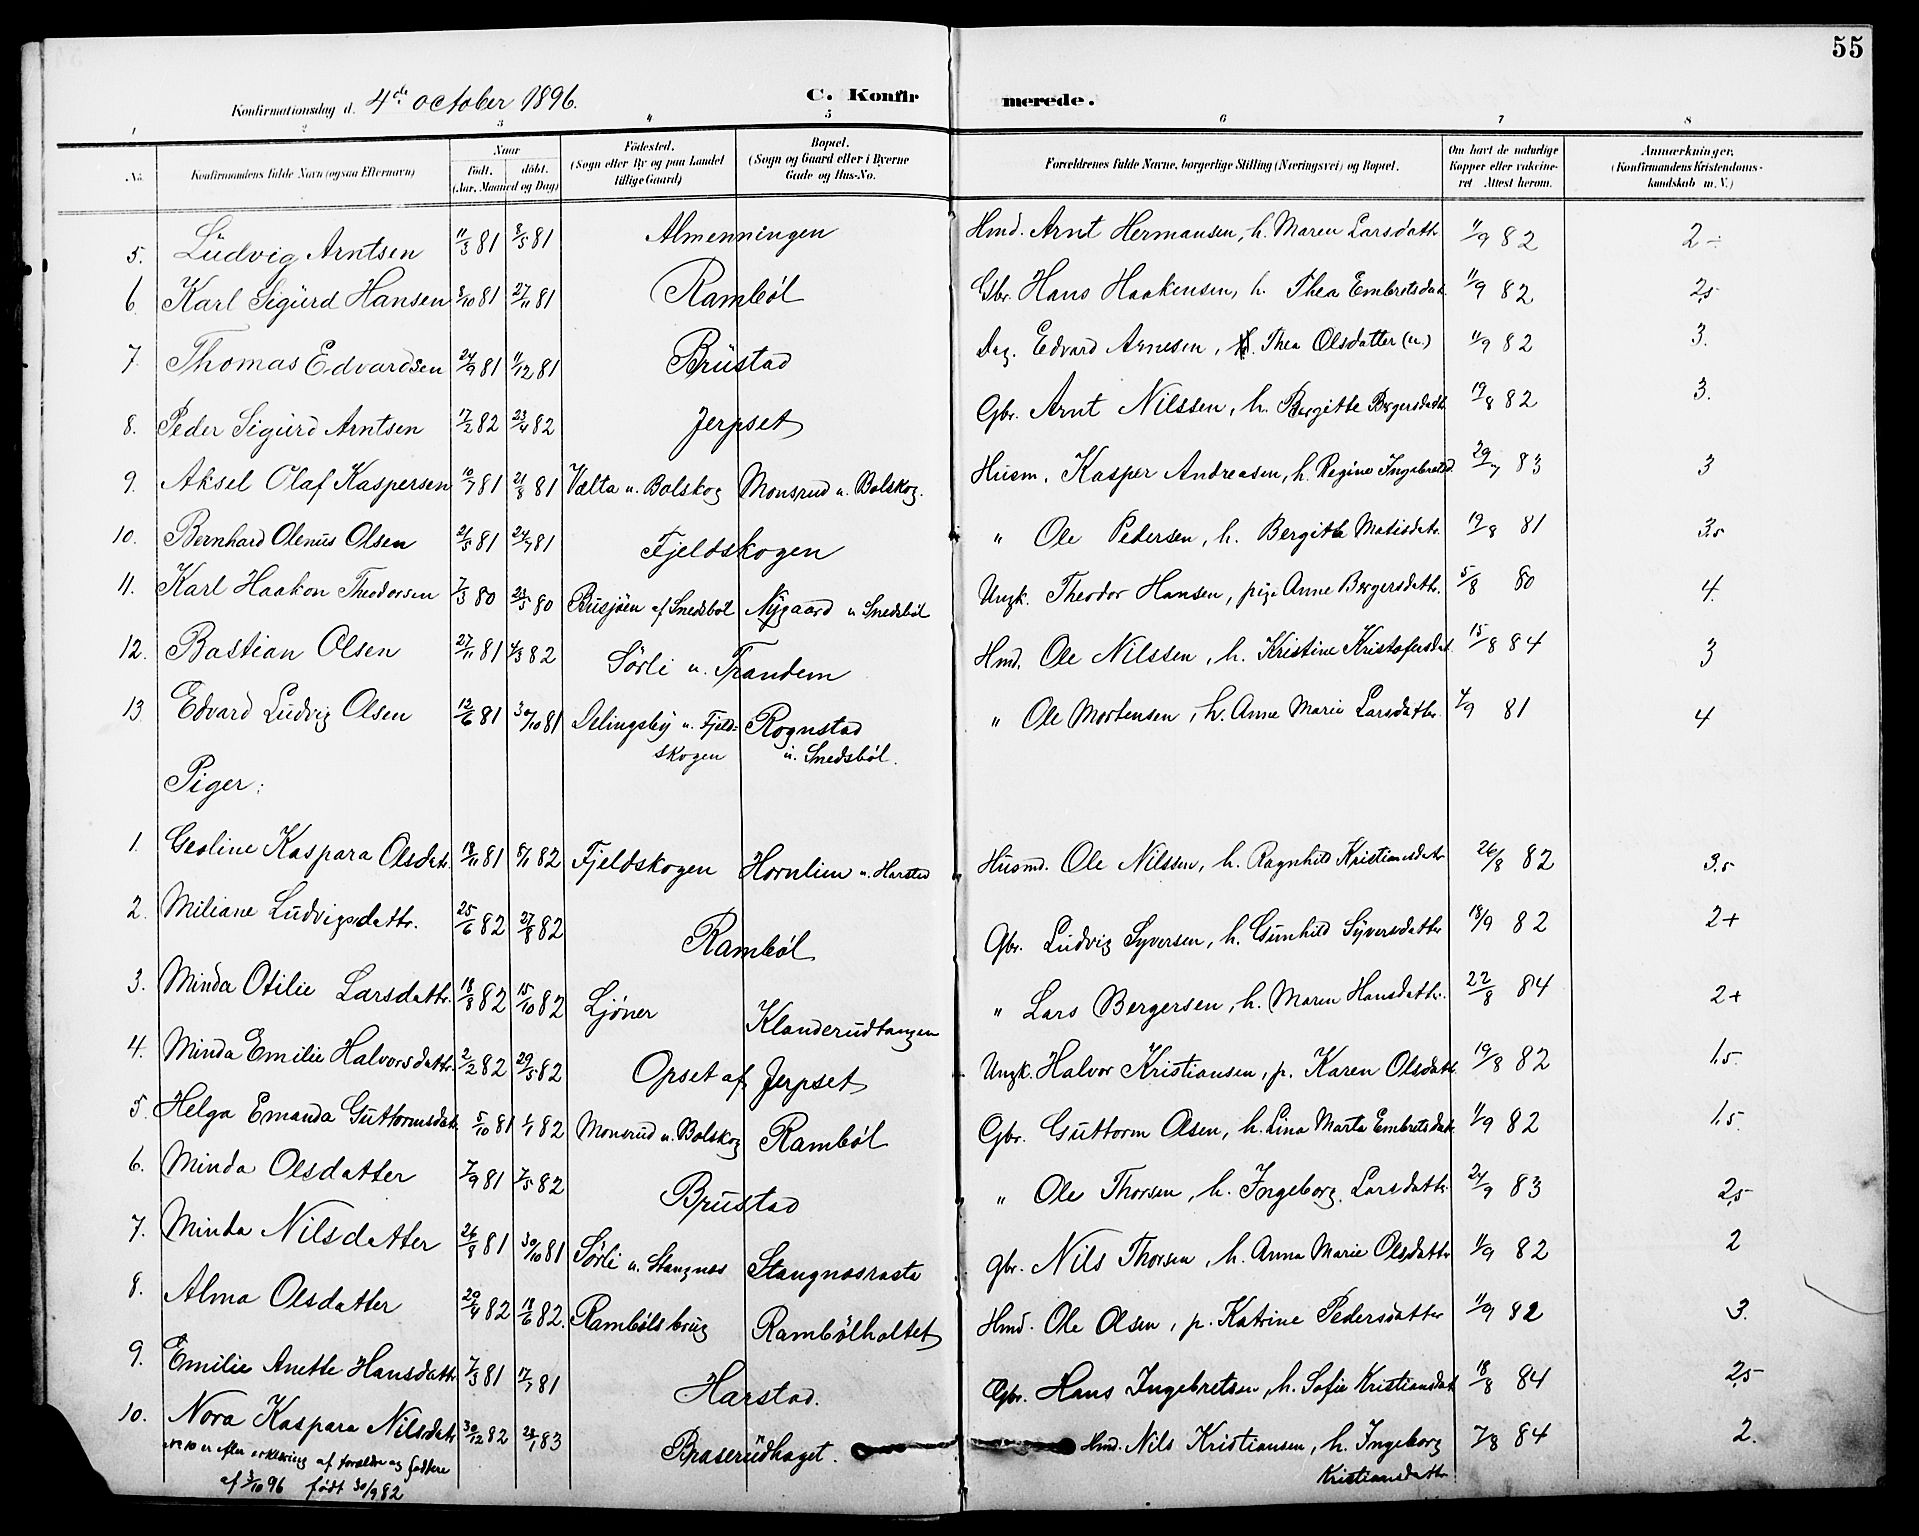 55
Konfirmationsdag d. 4de october 1896. C. Konfirmerede.
1 2 3 4 5 6 7 8
No. Konfirmandens fulde Navn (ogsaa Efternavn) Naar Født. døbt. (Aar, Maaned og Dag) Fødested. (Sogn eller By og paa Landet tillige Gaard) Bopæl. (Sogn og Gaard eller i Byerne Gade og Hus-No. Forældrenes fulde Navne, borgerlige Stilling (Næringsvei) og Bopæl. Om havt de naturlige Kopper eller vakcineret Attest herom. Anmærkninger, (Konfirmandens Kristendomskundskab m. V.)
5. Ludvig Arntsen 11/3 81 8/5 81 Almenningen Hmd. Arnt Hermansen, h. Maren Larsdattr 11/9 82 2-
6 Karl Sigurd Hansen 3/10 81 27/11 81 Rambøl Gbr. Hans Haakensen, h. Thea Embretsdat. 11/9 82 2,5
7. Thomas Edvardsen 24/9 81 11/12 81 Brustad Dag. Edvard Arnesen, h. Thea Olsdatter (u.) 11/9 82 3.
8. Peder Sigurd Arntsen 17/2 82 23/4 82 Jerpset Gbr. Arnt Nilssen, h. Bergitte Bergersdatt. 19/8 82 3.
9. Aksel Olaf Kaspersen 10/7 81 21/8 81 Vælta u. Bolskog Monsrud u. Bolskog. Husm. Kasper Andreasen, h. Regine Ingebretsd. 29/7 83 3
10. Bernhard Olenus Olsen 21/5 81 24/7 81 Fjeldskogen " Ole Pedersen, h. Bergitte Matisdatr. 19/8 81 3.5
11. Karl Haakon Theodorsen 7/3 80 23/5 80 Busjøen af Snedsbøl Nygaard u Snedsbøl Ungk. Theodor Hansen, pige Anne Bergersdattr. 5/8 80 4.
12. Bastian Olsen 27/11 81 1/3 82 Sørli u. Trandem Hmd. Ole Nilssen, h. Kristine Kristofersdat. 15/8 84 3
13. Edvard Ludvig Olsen 12/6 81 30/10 81 Delingsby u. Fjeld- Rognstad " Ole Mortensen, h. Anne Marie Larsdattr. 4/9 81 4
skogen u. Snedsbøl.
Piger:
1. Geoline Kaspara Olsdatr. 18/11 81 8/1 82 Fjeldskogen Hornlien u. Harstad Husmd. Ole Nilssen, h. Ragnhild Kristiansdatr 26/8 82 3.5
2. Miliane Ludvigsdattr. 25/6 82 27/8 82 Rambøl Gbr. Ludvig Syversen, h. Gunhild Syversdattr 18/9 82 2+
3. Minda Otilie Larsdattr. 18/8 82 15/10 82 Ljøner Klanderudtangen " Lars Bergersen, h. Maren Hansdattr. 22/8 84 2+
4. Minda Emilie Halvorsdattr. 2/2 82 29/5 82 Opset af Jerpset Ungk. Halvor Kristiansen, p. Karen Olsdattr. 19/8 82 1.5
5. Helga Emanda Guttormsdat. 5/10 81 1/1 82 Monsrud u. Bolskog Rambøl Gbr. Guttorm Olsen, h. Lina Marta Embretsdat. 11/9 82 1.5
6. Minda Olsdatter 7/9 81 7/5 82 Brustad " Ole Thorsen, h. Ingeborg Larsdattr. 24/9 83 2,5
7. Minda Nilsdatter 26/8 81 30/10 81 Sørli u. Stangnes Stangnesrasta Gbr. Nils Thorsen, h. Anna Marie Olsdattr 11/9 82 2
8. Alma Olsdatter 29/4 82 18/6 82. Rambølsbrug Rambølholtet Hmd. Ole Olsen, p. Katrine Pedersdatter 11/9 82 3.
9. Emilie Anette Hansdattr. 7/3 81 17/7 81 Harstad. Gbr. Hans Ingebretsen, h. Sofie Kristiansdat. 18/8 84 2,5
10. Nora Kaspara Nilsdatr 30/12 82 28/1 83 Braserudhaget. Hmd. Nils Kristiansen, h. Ingeborg 7/8 84 2.
No 10 er efter erklæring af forældre og faddere Kristiansdattr.
af 3/10 96 født 30/9 82